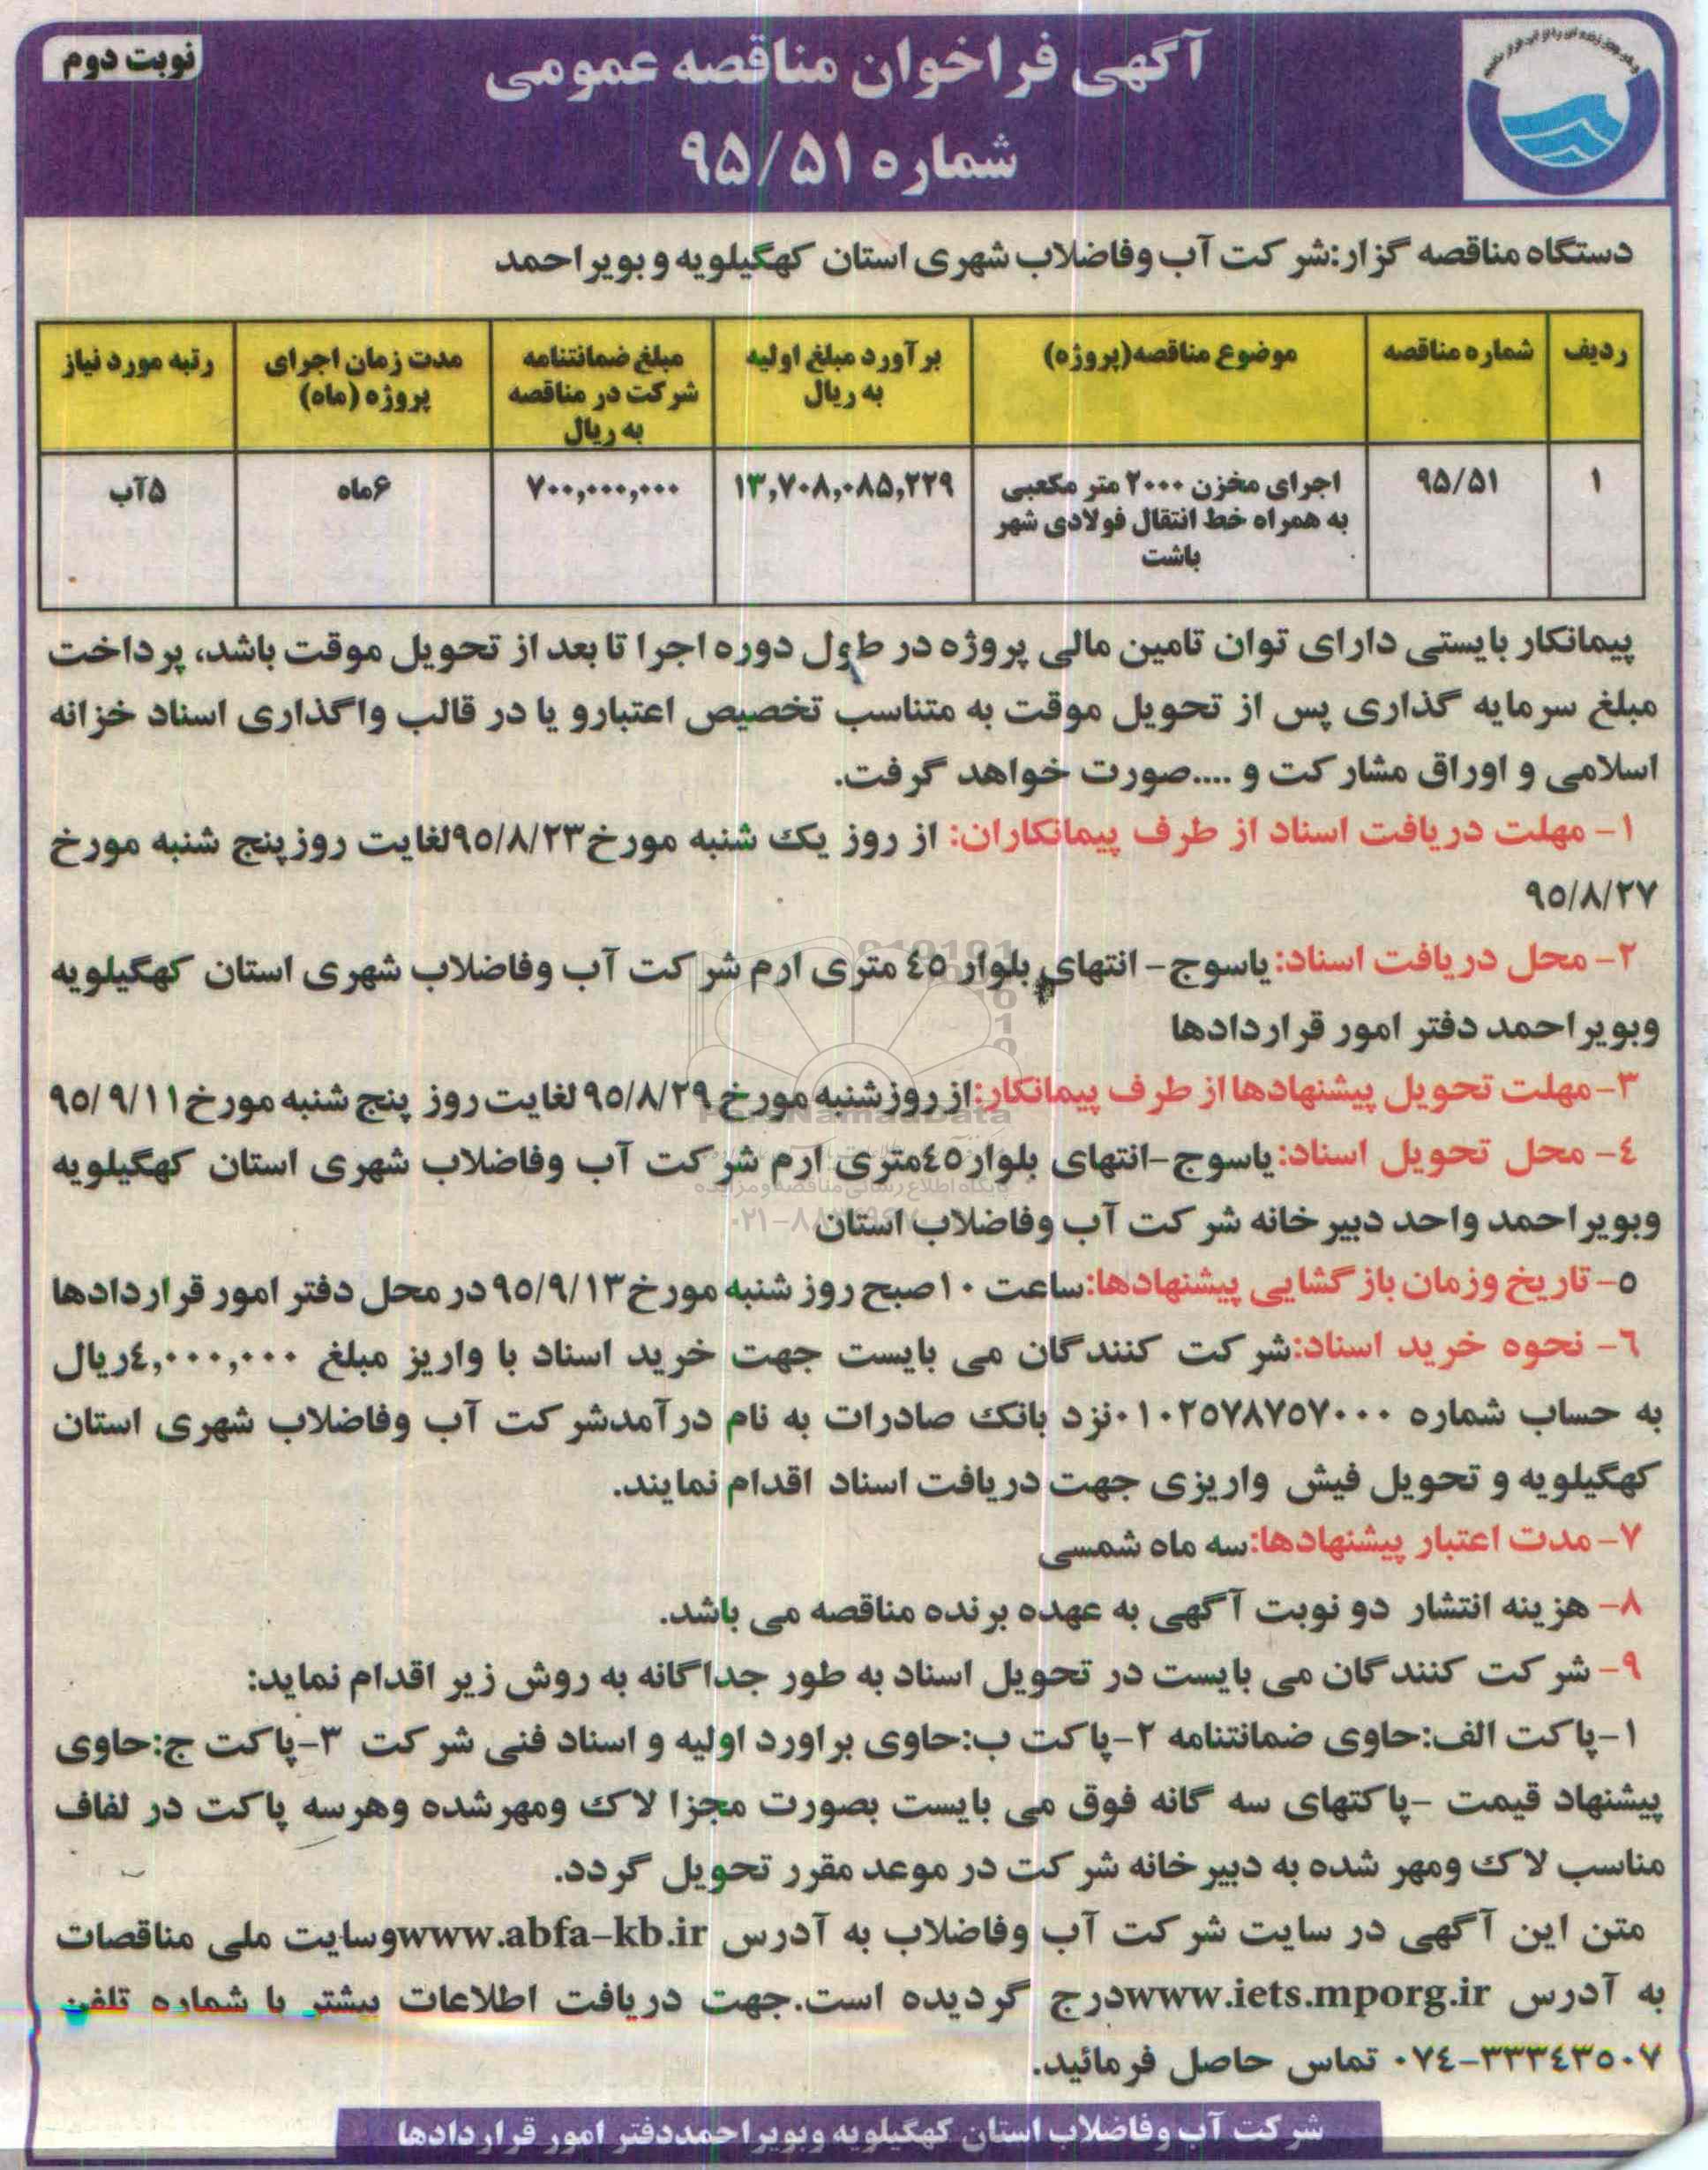 نوبت دوم
آگهی فراخوان مناقصه عمومی
شماره ۹۵/۵۱
دستگاه مناقصه گزار:شرکت آب وفاضلاب شهری استان کهگیلویه و بویراحمد
ردیف	شماره مناقصه	موضوع مناقصه(پروژه)	برآورد مبلغ اولیه به ریال	مبلغ ضمانتنامه شرکت در مناقصه به ریال	مدت زمان اجرای پروژه (ماه)	رتبه مورد نیاز
۱	۹۵/۵۱	اجرای مخزن ۲۰۰۰ متر مکعبی به همراه خط انتقال فولادی شهر باشت	۱۳,۷۰۸,۰۸۵,۲۲۹	۷۰۰,۰۰۰,۰۰۰	۶ماه	۵آب
پیمانکار بایستی دارای توان تامین مالی پروژه در طول دوره اجرا تا بعد از تحویل موقت باشد، پرداخت
مبلغ سرمایه گذاری پس از تحویل موقت به متناسب تخصیص اعتبارو یا در قالب واگذاری اسناد خزانه
اسلامی و اوراق مشارکت و ....صورت خواهد گرفت.
۱- مهلت دریافت اسناد از طرف پیمانکاران: از روز یک شنبه مورخ۹۵/۸/۲۳لغایت روزپنج شنبه مورخ
۹۵/۸/۲۷
۲- محل دریافت اسناد: یاسوج- انتهای بلوار ۴۵ متری ارم شرکت آب وفاضلاب شهری استان کهگیلویه
وبویراحمد دفتر امور قراردادها
۳-مهلت تحویل پیشنهادها از طرف پیمانکار:از روزشنبه مورخ ۹۵/۸/۲۹ لغایت روز پنج شنبه مورخ ۹۵/۹/۱۱
۴- محل تحویل اسناد: یاسوج-انتهای بلوار۴۵متری ارم شرکت آب وفاضلاب شهری استان کهگیلویه
وبویراحمد واحد دبیرخانه شرکت آب وفاضلاب استان
۵- تاریخ وزمان بازگشایی پیشنهادها:ساعت ۱۰صبح روز شنبه مورخ۹۵/۹/۱۳در محل دفتر امور قراردادها
۶- نحوه خرید اسناد:شرکت کنندگان می بایست جهت خرید اسناد با واریز مبلغ ۴,۰۰۰,۰۰۰ریال
به حساب شماره ۰۱۰۲۵۷۸۷۵۷۰۰۰نزد بانک صادرات به نام درآمدشرکت آب وفاضلاب شهری استان
کهگیلویه و تحویل فیش واریزی جهت دریافت اسناد اقدام نمایند.
۷- مدت اعتبار پیشنهادها:سه ماه شمسی
۸- هزینه انتشار دو نوبت آگهی به عهده برنده مناقصه می باشد.
۹- شرکت کنندگان می بایست در تحویل اسناد به طور جداگانه به روش زیر اقدام نماید:
۱-پاکت الف:حاوی ضمانتنامه ۲-پاکت ب:حاوی براورد اولیه و اسناد فنی شرکت ۳-پاکت ج:حاوی
پیشنهاد قیمت -پاکتهای سه گانه فوق می بایست بصورت مجزا لاک ومهرشده وهرسه پاکت در لفاف
مناسب لاک ومهر شده به دبیرخانه شرکت در موعد مقرر تحویل گردد.
متن این آگهی در سایت شرکت آب وفاضلاب به آدرس www.abfa-kb.irوسایت ملی مناقصات
به آدرس www.iets.mporg.irدرج گردیده است.جهت دریافت اطلاعات بیشتر با شماره تلفن
۰۷۴-۳۳۳۴۳۵۰۷ تماس حاصل فرمائید.
شرکت آب وفاضلاب استان کهگیلویه وبویراحمددفتر امور قراردادها